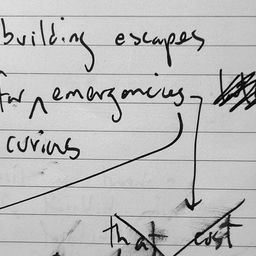 building escapes
for ^ emergencies
curious
that cost